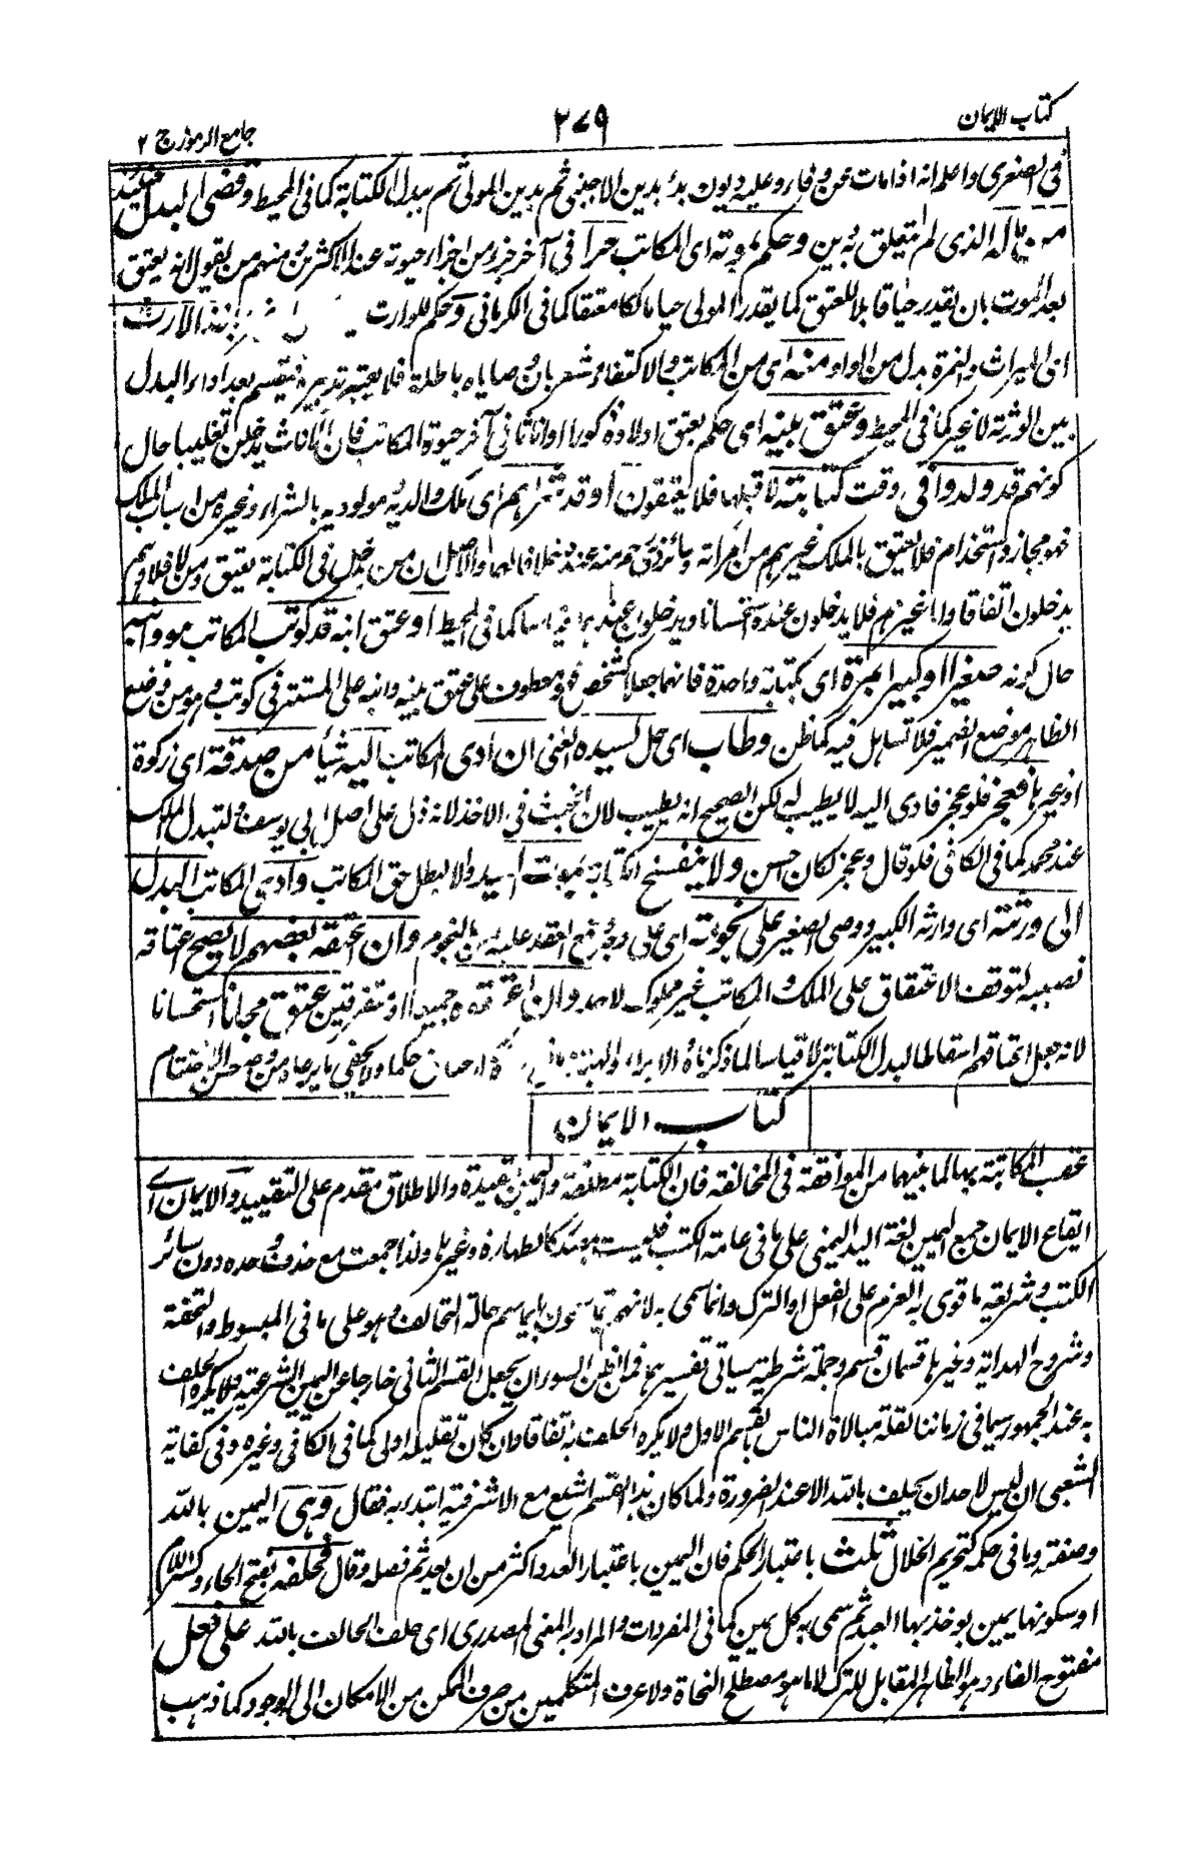 كتاب الايمان
٢٧٩
جامع الرموز ج ٢
فى الصغرى واعلم انه اذا مات عن وفاء وعليه ديون بدئ بدين الاجنبى ثم بدين المولى ثم ببدل الكتابة كما فى المحيط وقضى البدل
من ماله الذى لم يتعلق به دين وحكم بموته اى المكاتب حرا فى آخر جزء من اجزاء حيوته عند الاكثرين ومنهم من يقول انه يعتق
بعد الموت بان يقدر حيا قابلا للعتق كما يقدر المولى حيا مالكا معتقا كما فى الكرمانى وحكم للوارث الارث
اى الميراث والهمزة بدل من الواو منه اى من المكاتب والاكتفاء مشعر بان وصاياه باطلة فلا يعتبر تدبيره فيقسم بعد اداء البدل
بين الورثة لا غير كما فى المحيط وعتق بنيه اى حكم بعتق اولاده ذكورا او اناثا فى آخر حيوة المكاتب فان الاناث يدخلن تغليبا حال
كونهم قد ولدوا فى وقت كتابته لا قبلها فلا يعتقون او قد شراهم اى ملك والديه ومولوديه بالشراء وغيره من اسباب الملك
فهو مجاز واستخدام فلا يعتق بالملك غيرهم من امرأته وما ذى رحم منه عنده خلافا لهما والاصل ان من دخل فى الكتابة يعتق ومن لا فلا وهم
يدخلون اتفاقا واما غيرهم فلا يدخلون عنده استحسانا ويدخلون عندهما قياسا كما فى المحيط او عتق ابنه قد كوتب المكاتب هو وابنه
حال كونه صغيرا او كبيرا بمرة اى بكتابة واحدة فانهما جعلا كشخص فهو معطوف على عتق بنيه وابنه على المستتر فى كوتب وهو من وضع
الظاهر موضع الضمير فلا تساهل فيه كما ظن وطاب اى حل لسيده الغنى ان ادى المكاتب اليه شيأ من صدقة اى زكوة
او غيرها فعجز فلو عجز فادى اليه لا يطيب له لكن الصحيح انه يطيب لان الخبث فى الاخذ لانه ذل على اصل ابى يوسف ولتبدل الملك
عند محمد كما فى الكافى فلو قال وعجز لكان احسن ولا ينفسخ الكتابة بموت السيد ولا يبطل حق المكاتب وادى المكاتب البدل
الى ورثته اى وارثه الكبير ووصى الصغير على نجومه اى على وجه وقع العقد عليه من النجوم وان عتقه بعضهم لا يصح اعتاقه
نصيبه لتوقف الاعتاق على الملك والمكاتب غير مملوك لاحد وان اعتقوه جميعا او متفرقين عتق مجانا استحسانا
لانه جعل اعتاقهم اسقاطا لبدل الكتابة لا قياسا لما ذكرناه والابراء والهبة حكما ولا يخفى ما يرعاه من حسن الاختتام
كتاب الايمان
عقب المكاتبة بها لما بينهما من الموافقة فى المخالفة فان الكتابة مطلقة واليمين مقيدة والاطلاق مقدم على التقييد والايمان اى
ايقاع الايمان جمع اليمين لغة اليد اليمنى على ما فى عامة الكتب فليست بمصدر كالطهارة وغيرها ولذا جمعت مع حذف وحده دون سائر
الكتب وشريعة ما قوى به العزم على الفعل او الترك وانما سمى به لانهم يتماسحون بايمانهم حالة التحالف وهو على ما فى المبسوط والتحفة
وشروح الهداية وغيرها قسمان قسم وجملة شرطية سياتى تفسيرهما فما ظن السوران يجعل القسم الثانى خارجا عن اليمين الشرعية فلا يكره الحلف
به عند الجمهور سيما فى زماننا لقلة مبالاة الناس بالقسم الاول ولا يكره الحلف به اتفاقا وان كان تقليله اولى كما فى الكافى وغيره وفى كفاية
الشعبى ان ليس لاحد ان يحلف بالله الا عند الضرورة ولما كان هذا القسم اشيع مع الاشرفية ابتدأ به فقال وهى اليمين بالله
وصفته وما فى حكمه كتحريم الحلال ثلث باعتبار الحكم فان اليمين باعتبار العدد اكثر من ان يعد ثم فصله وقال فحلفه بفتح الحاء وكسر اللام
او سكونها يمين يوخذ بها العهد ثم سمى به كل يمين كما فى المفردات والمراد المعنى المصدرى اى حلف الحالف بالله على فعل
مفتوح الفاء وهو الظاهر المقابل للترك لا ما هو مصطلح النحاة ولا عرف المتكلمين من صرف الممكن من الامكان الى الوجود كما ذهب